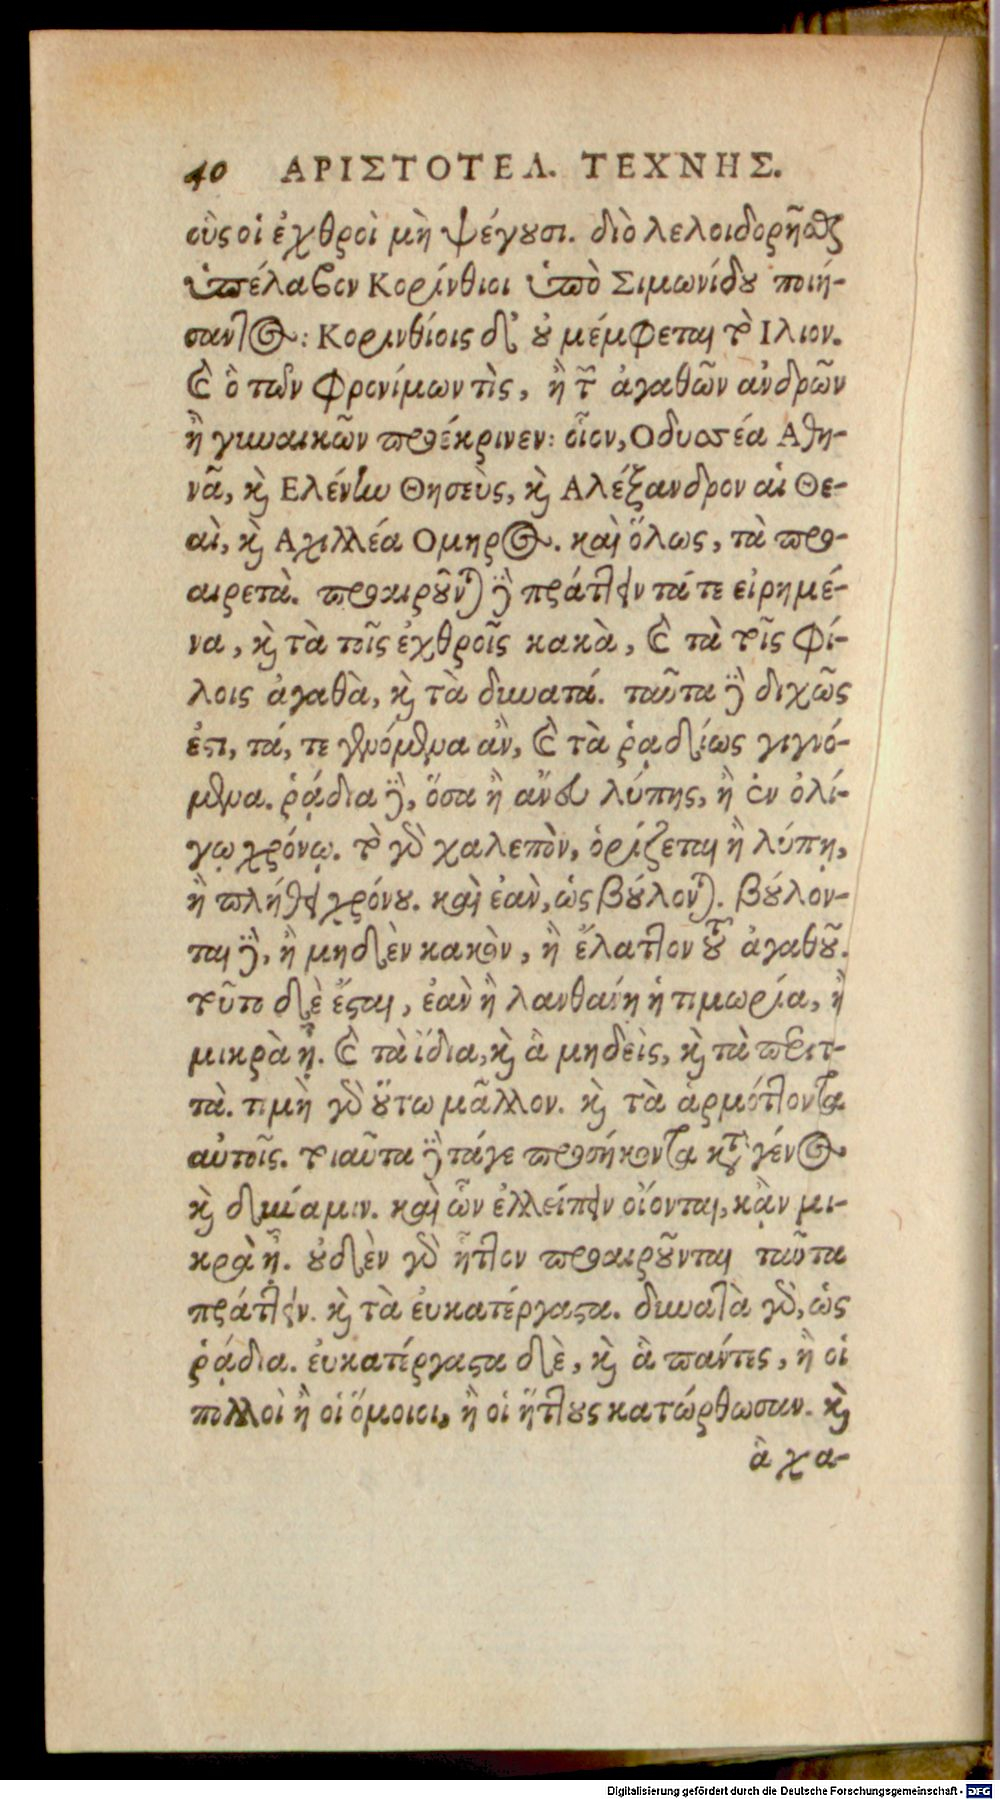 40 ΑΡΙΣΤΟΤΕΛ. ΤΕΧΝΗΣ.
οὓς οἱ ἐχθροὶ μὴ ψέγουσι. διὸ λελοιδορῆσθαι
ὑπέλαβον Κορίνθιοι ὑπὸ Σιμωνίδου ποιή-
σαντος: Κορινθίοις δ' οὐ μέμφεται τὸ Ιλιον.
καὶ ὃ τῶν φρονίμων τὶς, ἢ τῶν ἀγαθῶν ἀνδρῶν
ἢ γυναικῶν προέκρινεν: οἷον, Οδυσσέα Αθη-
νᾶ, καὶ Ελένην Θησεὺς, καὶ Αλέξανδρον αἱ Θε-
αὶ, καὶ Αχιλλέα Ομηρος. καὶ ὅλως, τὰ προ-
αιρετὰ. προαιροῦνται δὲ πράττειν τά τε εἰρημέ-
να, καὶ τὰ τοῖς ἐχθροῖς κακὰ, καὶ τὰ τοῖς φί-
λοις ἀγαθὰ, καὶ τὰ δυνατά. ταῦτα δὲ διχῶς
ἐστι, τά, τε γενόμενα ἂν, καὶ τὰ ῥᾳδίως γιγνό-
μενα. ῥᾴδια δὲ, ὅσα ἢ ἄνευ λύπης, ἢ ἐν ὀλί-
γῳ χρόνῳ. τὸ γὰρ χαλεπὸν, ὁρίζεται ἢ λύπῃ,
ἢ πλήθει χρόνου. καὶ ἐὰν, ὡς βούλονται. βούλον-
ται δὲ, ἢ μηδὲν κακὸν, ἢ ἔλαττον τοῦ ἀγαθοῦ.
τοῦτο δὲ ἔσται, ἐὰν ἢ λανθάνη ἡ τιμωρία, ἢ
μικρὰ ᾖ. καὶ τὰ ἴδια, καὶ ἃ μηδεὶς, καὶ τὰ περιτ-
τὰ. τιμὴ γὰρ οὕτω μᾶλλον. καὶ τὰ ἁρμόττοντα
αὐτοῖς. τοιαῦτα δὲ τάγε προσήκοντα κατὰ γένος
καὶ δύναμιν. καὶ ὧν ἐλλείπειν οἴονται, κᾂν μι-
κρὰ ᾖ. οὐδὲν γὰρ ἧττον προαιροῦνται ταῦτα
πράττειν. καὶ τὰ εὐκατέργαστα. δυνατὰ γὰρ, ὡς
ῥᾴδια. εὐκατέργαστα δὲ, καὶ ἃ πάντες, ἢ οἱ
πολλοὶ ἢ οἱ ὅμοιοι, ἢ οἱ ἥττους κατώρθωσαν. καὶ
ἃ χα-
Digitalisierung gefördert durch die Deutsche Forschungsgemeinschaft - DFG